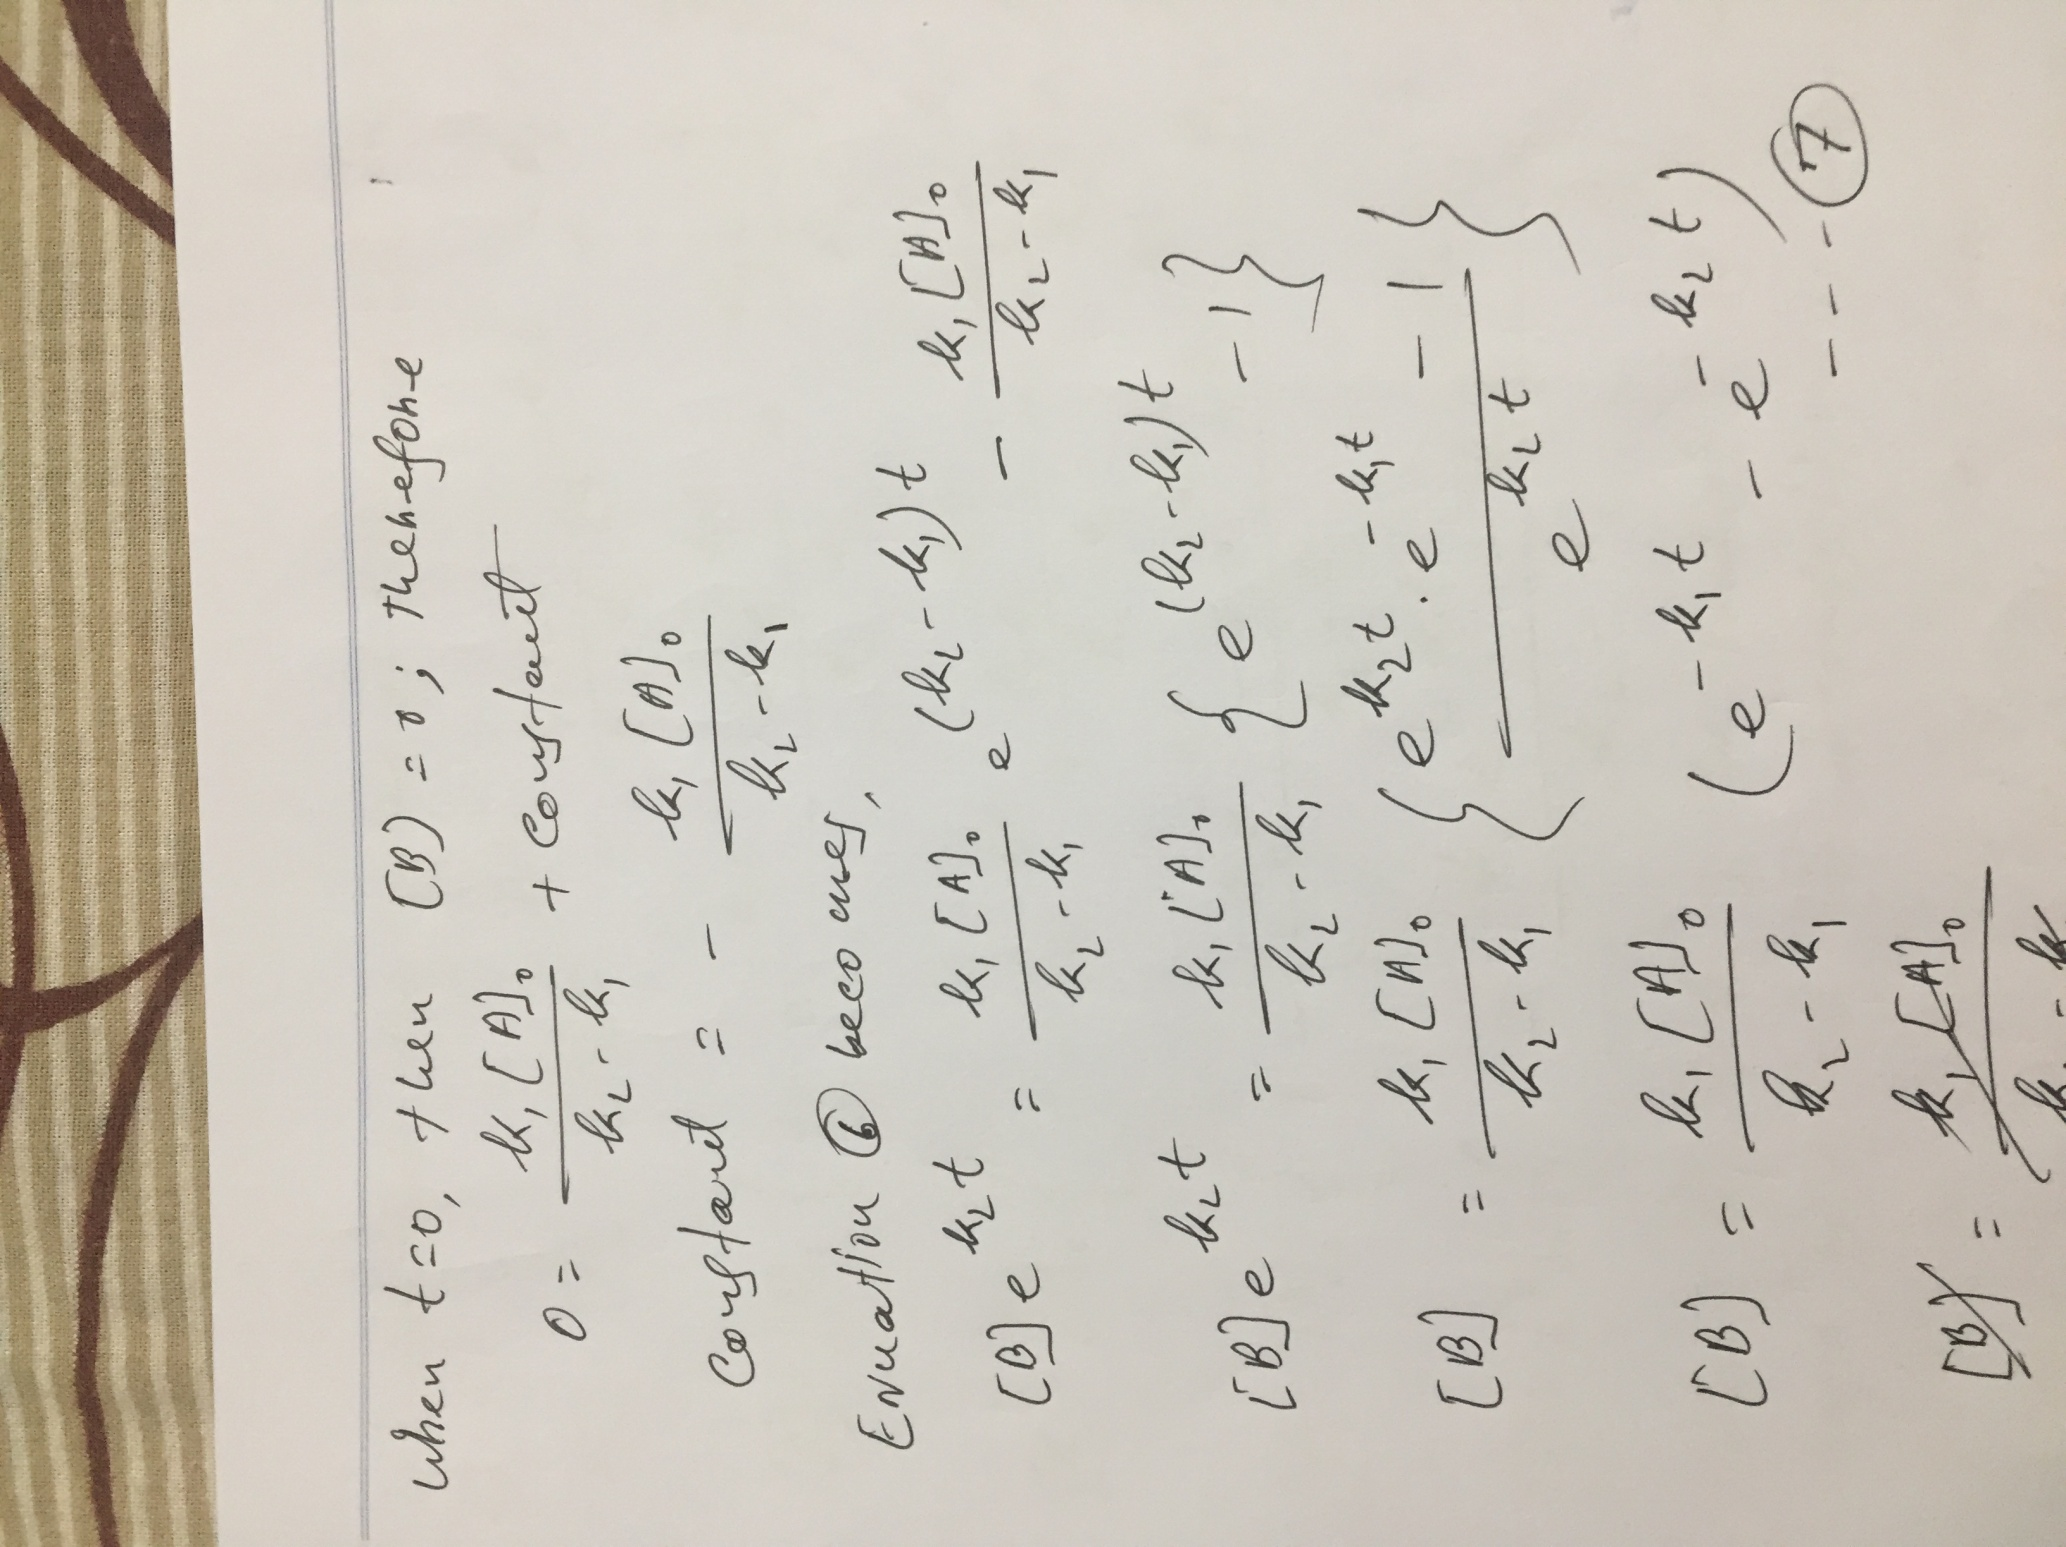 When t=0, then [B]=0; Therefore
0 = k₁[A]₀ / k₂-k₁ + Constant
Constant = - k₁[A]₀ / k₂-k₁
Enuation ⑥ becomes,
[B] e^k₂t = k₁[A]₀ / k₂-k₁ e^(k₂-k₁)t - k₁[A]₀ / k₂-k₁
[B] e^k₂t = k₁[A]₀ / k₂-k₁ { e^(k₂-k₁)t - 1 }
[B] = k₁[A]₀ / k₂-k₁ { e^k₂t . e^-k₁t - 1 / e^k₂t }
[B] = k₁[A]₀ / k₂-k₁ ( e^-k₁t - e^-k₂t ) - - - ⑦
[B] = k₁[A]₀